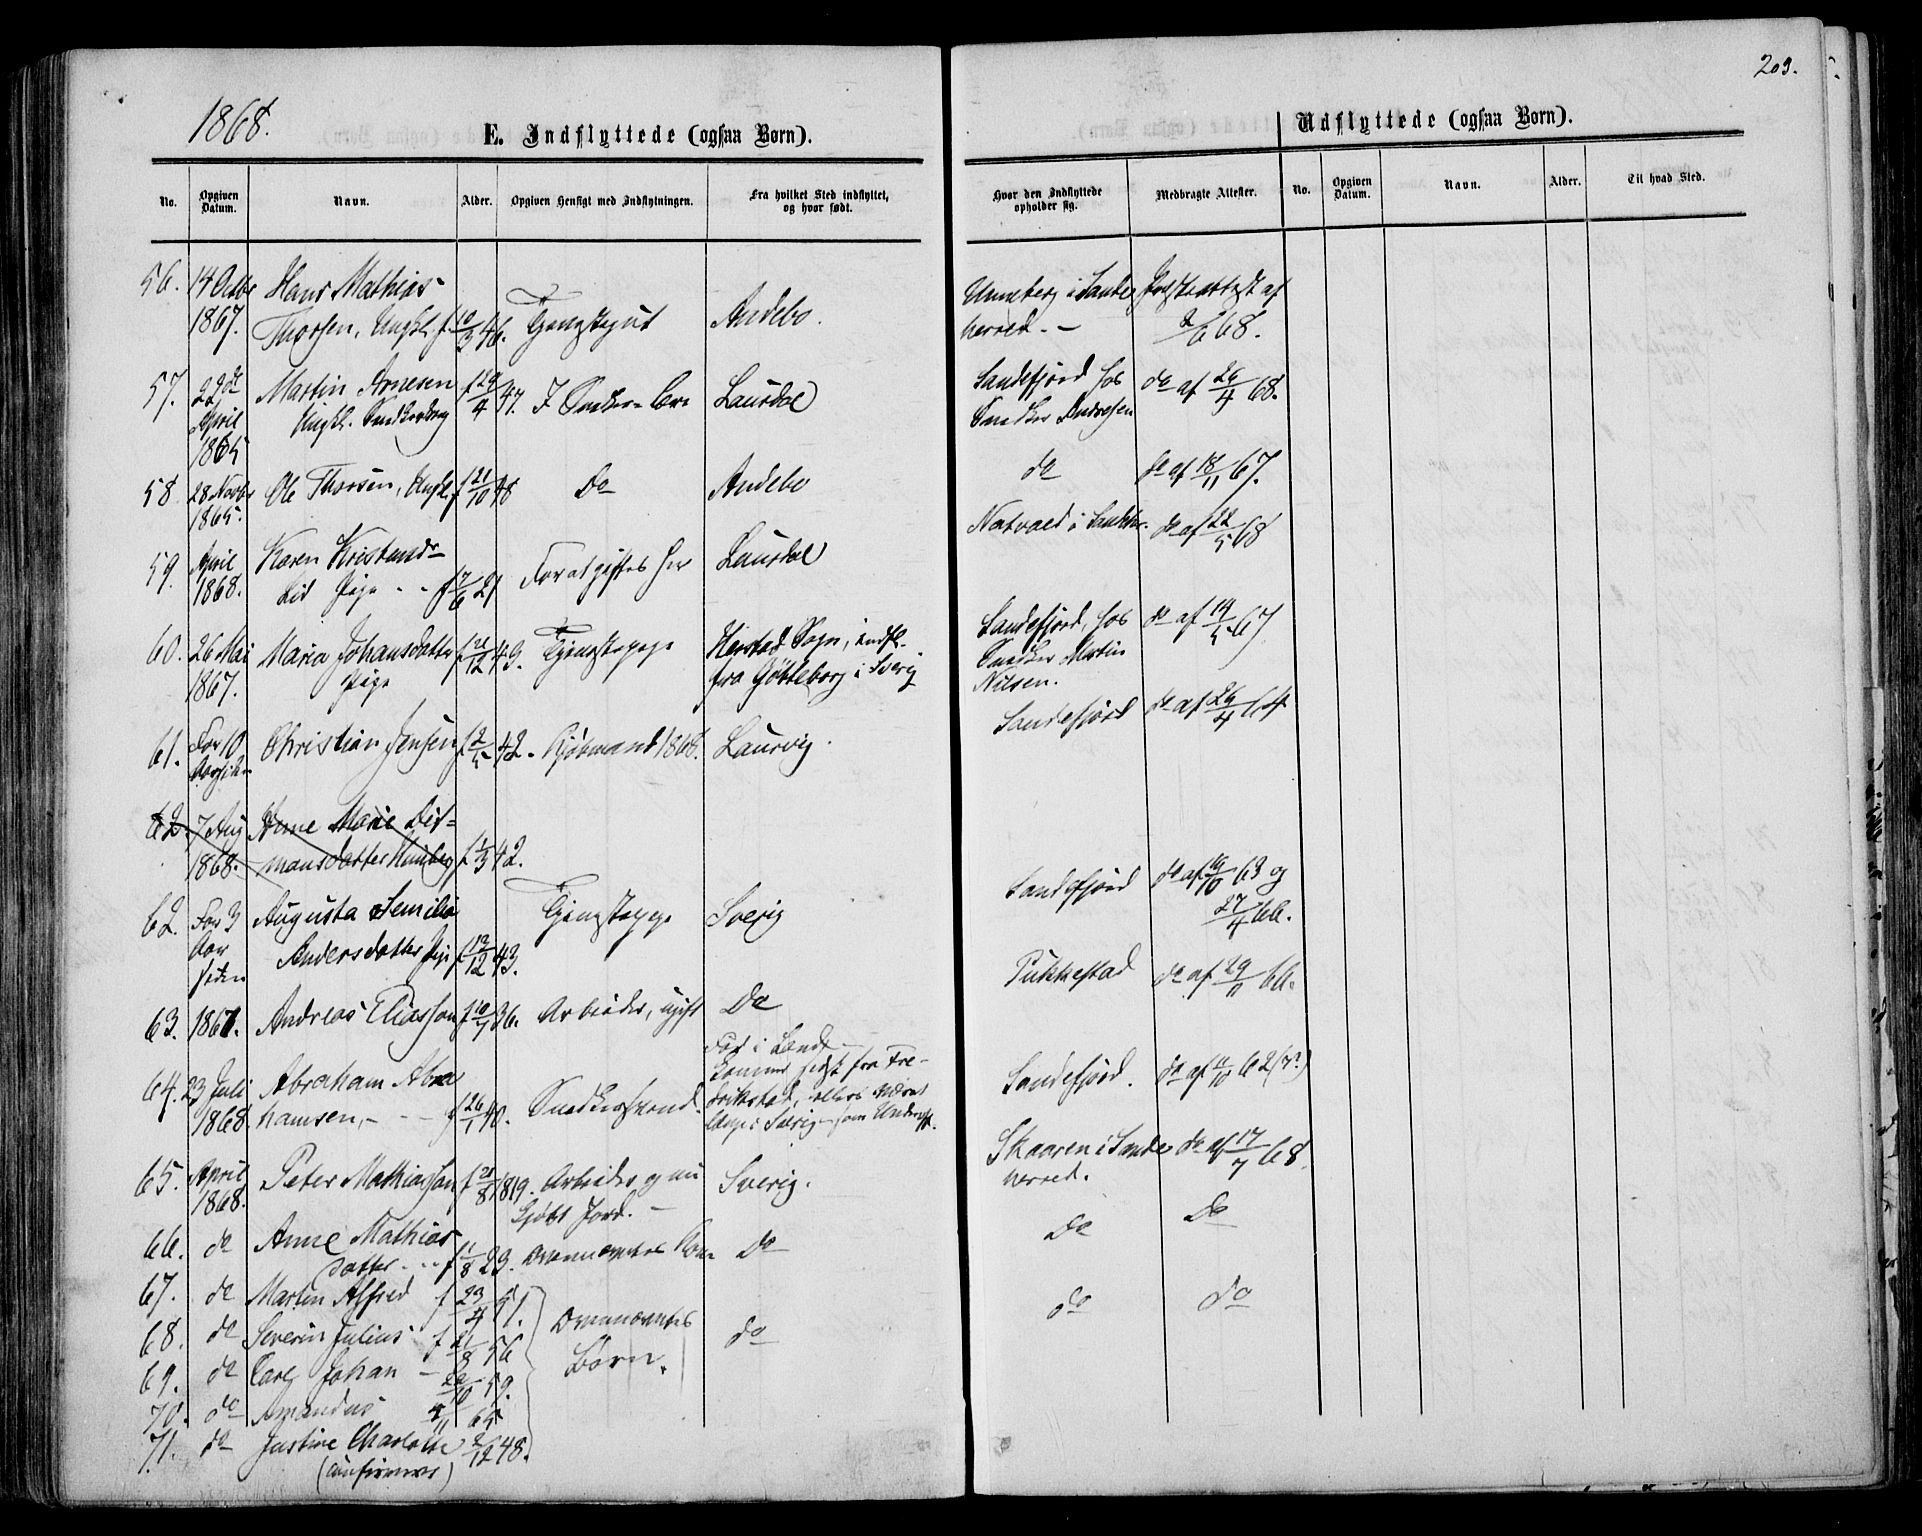 203.
1868.
E. Indflyttede (ogsaa Børn).
Udflyttede (ogsaa Børn).
No.
Opgiven Datum.
Navn.
Alder.
Opgiven Hensigt med Indflytningen.
Fra hvilket Sted indflyttet, og hvor født.
Hvor den Indflyttede opholder sig.
Medbragte Attester.
No.
Opgiven Datum.
Navn.
Alder.
Til hvad Sted.
56. 14 Octbr 1867.
Hans Mathias
Thorsen, Ungkl. f 10/3 46.
Tjenestegut
Andebo.
Unneberg i Sande
herred. -
Præsteattest af
2/6 68.
57. 22de April 1865
Martin Arnesen
Ungkl. Snedkerdreng
f 29/4 47.
I Snedker-lære
Laurdal
Sandefjord hos
Snedker Andresen
do af 26/4 68.
58. 28 Novbr 1865.
Ole Thorsen, Ungkl. f 21/10 48
Do
Andebo
do
do af 18/11 67.
59. April 1868.
Karen Kristensdr
Lid Pige - - f 7/6 21
For at giftes her
Laurdal
Natvald i Sandehr.
do af 22/5 68
60. 26 Mai 1867.
Maria Johansdatter
Pige
f 21/12 43.
Tjenestepige
Herstad Sogn, indfl.
fra Gøtteborg i Sverig
Sandefjord, hos
Snedker Martin
Nilsen.
do af 19/5 67
61. For 10 Aar siden
Christian Jensen f 2/5 42.
Kjøbmand 1868.
Laurvig.
Sandefjord
do af 26/4 64
62. 7 Aug 1868.
Anne Marie Dit=
mansdatter Hauberg f 1/3 42.
62. For 3 Aar siden
Augusta Semilia
Andersdatter Pige f 12/12 43.
Tjenestepige
Sverig
Sandefjord
do af 19/10 63 og
27/4 66.
63. 1867.
Andreas Eliasson f 10/7 36.
Arbeider, ugift
Do
Pukkestad
do af 29/11 66.
64. 23 Juli 1868.
Abraham Abra
hamsen, - - - f 26/1 40.
Snedkersvend.
Fød i Lands-
kommer sidst fra Fre-
drikstad, ellers været
længe i Sverig - som Undersaat.
Sandefjord.
do af 11/10 62 (?)
65. April 1868.
Peter Mathiasson f 21/8 1819.
Arbeider og nu
Kjøbt Jord. -
Sverig.
Skaaren i Sande
herred.
do af 17/7 68.
66. do
Anne Mathias
datter - - f 1/8 23.
Ovennævntes Kone
Do
Do
Do
67. do Martin Alfred f 23/4 51.
68. do Severin Julius f 21/8 56
69. do Carl Johan - 20/10 59.
70. do Amandus 4/11 65
71. do Justine Charlotte 2/12 48.
(confirmeret)
Ovennævntes
Børn.
do
do
do